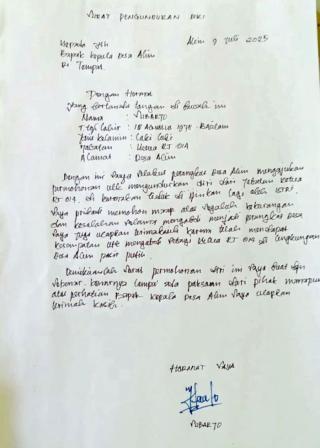 SURAT PENGUNDURAN DIRI
Kepada Yth Alim 9 Juli 2025
Bapak Kepala Desa Alim
Di Tempat
Dengan Hormat
Yang bertanda tangan di bawah ini
Nama : SUBARJO
T tgl Lahir : 18 Agustus 1978 -
Jenis kelamin : Laki Laki
Jabatan : Ketua RT 01A
Alamat : Desa Alim
Dengan ini saya selaku perangkat Desa Alim mengajukan
permohonan utk mengundurkan diri dari Jabatan Ketua
RT 01A. di karenakan tidak di izinkan lagi oleh istri.
Saya pribadi memohon maaf atas segalah kekurangan
dan kesalahan selama mengabdi menjadi perangkat Desa
Saya juga ucapkan terimakasih karena telah mendapat
kesempatan utk mengabdi sebagai Ketua RT 01A di lingkungan
Desa Alim pasir putih.
Demikianlah surat permohonan diri ini saya buat dgn
sebenar benarnya tanpa ada paksaan dari pihak manapun
atas perhatian Bapak Kepala Desa Alim saya ucapkan
terimah kasih.
HORMAT SAYA
SUBARJO